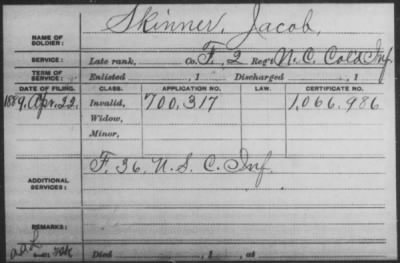 NAME OF SOLDIER: Skinner, Jacob,
SERVICE: Late rank, Co. F, 2 Reg't N.C. Cold Inf.
TERM OF SERVICE: Enlisted , 1 Discharged , 1
DATE OF FILING. CLASS. APPLICATION NO. LAW. CERTIFICATE NO.
1889, Apr. 22. Invalid, 700,317 1,066,986
Widow,
Minor,
ADDITIONAL SERVICES: F. 36. U.S.C. Inf.
REMARKS:
Died , 1 , at